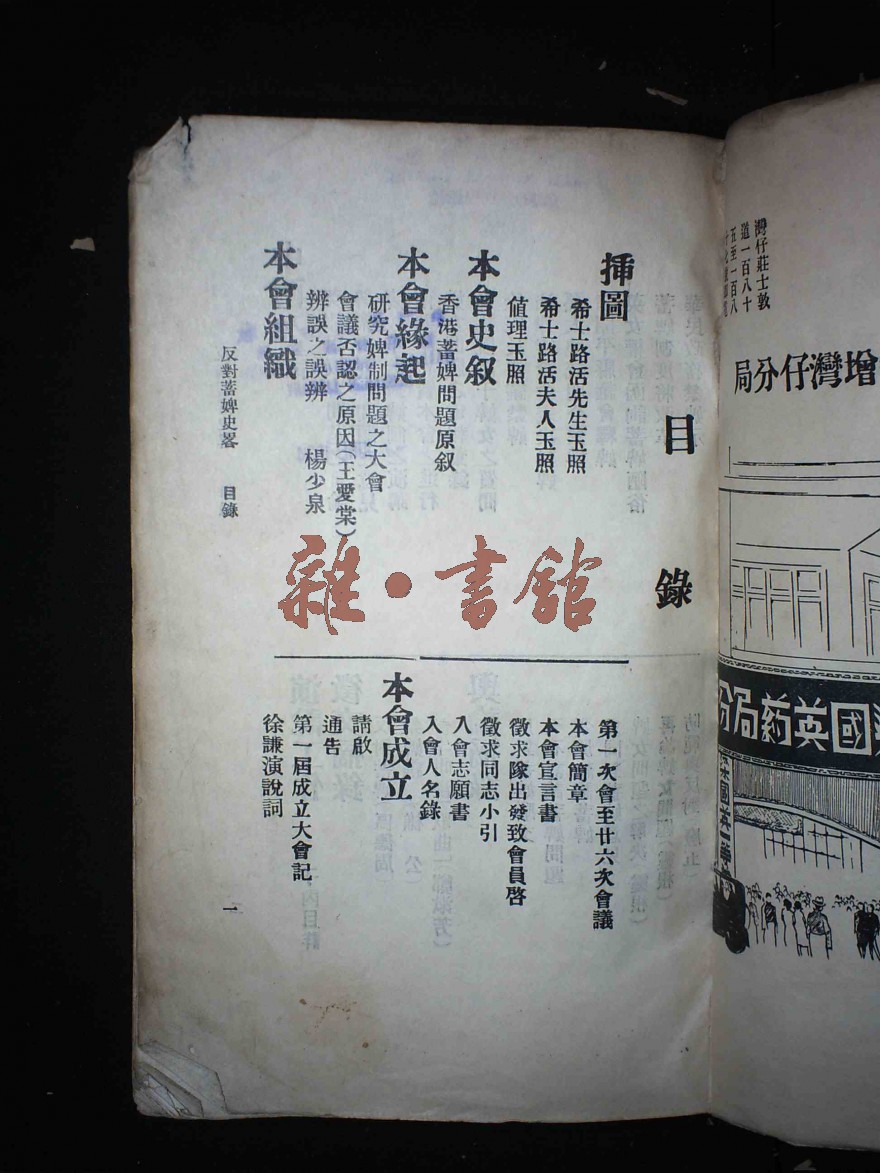 目錄
揷圖
希士路活先生玉照
希士路活夫人玉照
値理玉照
本會史叙
香港蓄婢問題原叙
本會緣起
研究婢制問題之大會
會議否認之原因(王愛棠)
辨誤之誤辨 楊少泉
本會組織
第一次會至廿六次會議
本會簡章
本會宣言書
徵求隊出發致會員啓
徵求同志小引
入會志願書
入會人名錄
本會成立
請啟
通告
第一屆成立大會記
徐謙演說詞
反對蓄婢史畧 目錄
一
雜·書館
灣仔莊士敦
道一百八十
五至一百八
增灣仔分局
國英葯局分
梁國英